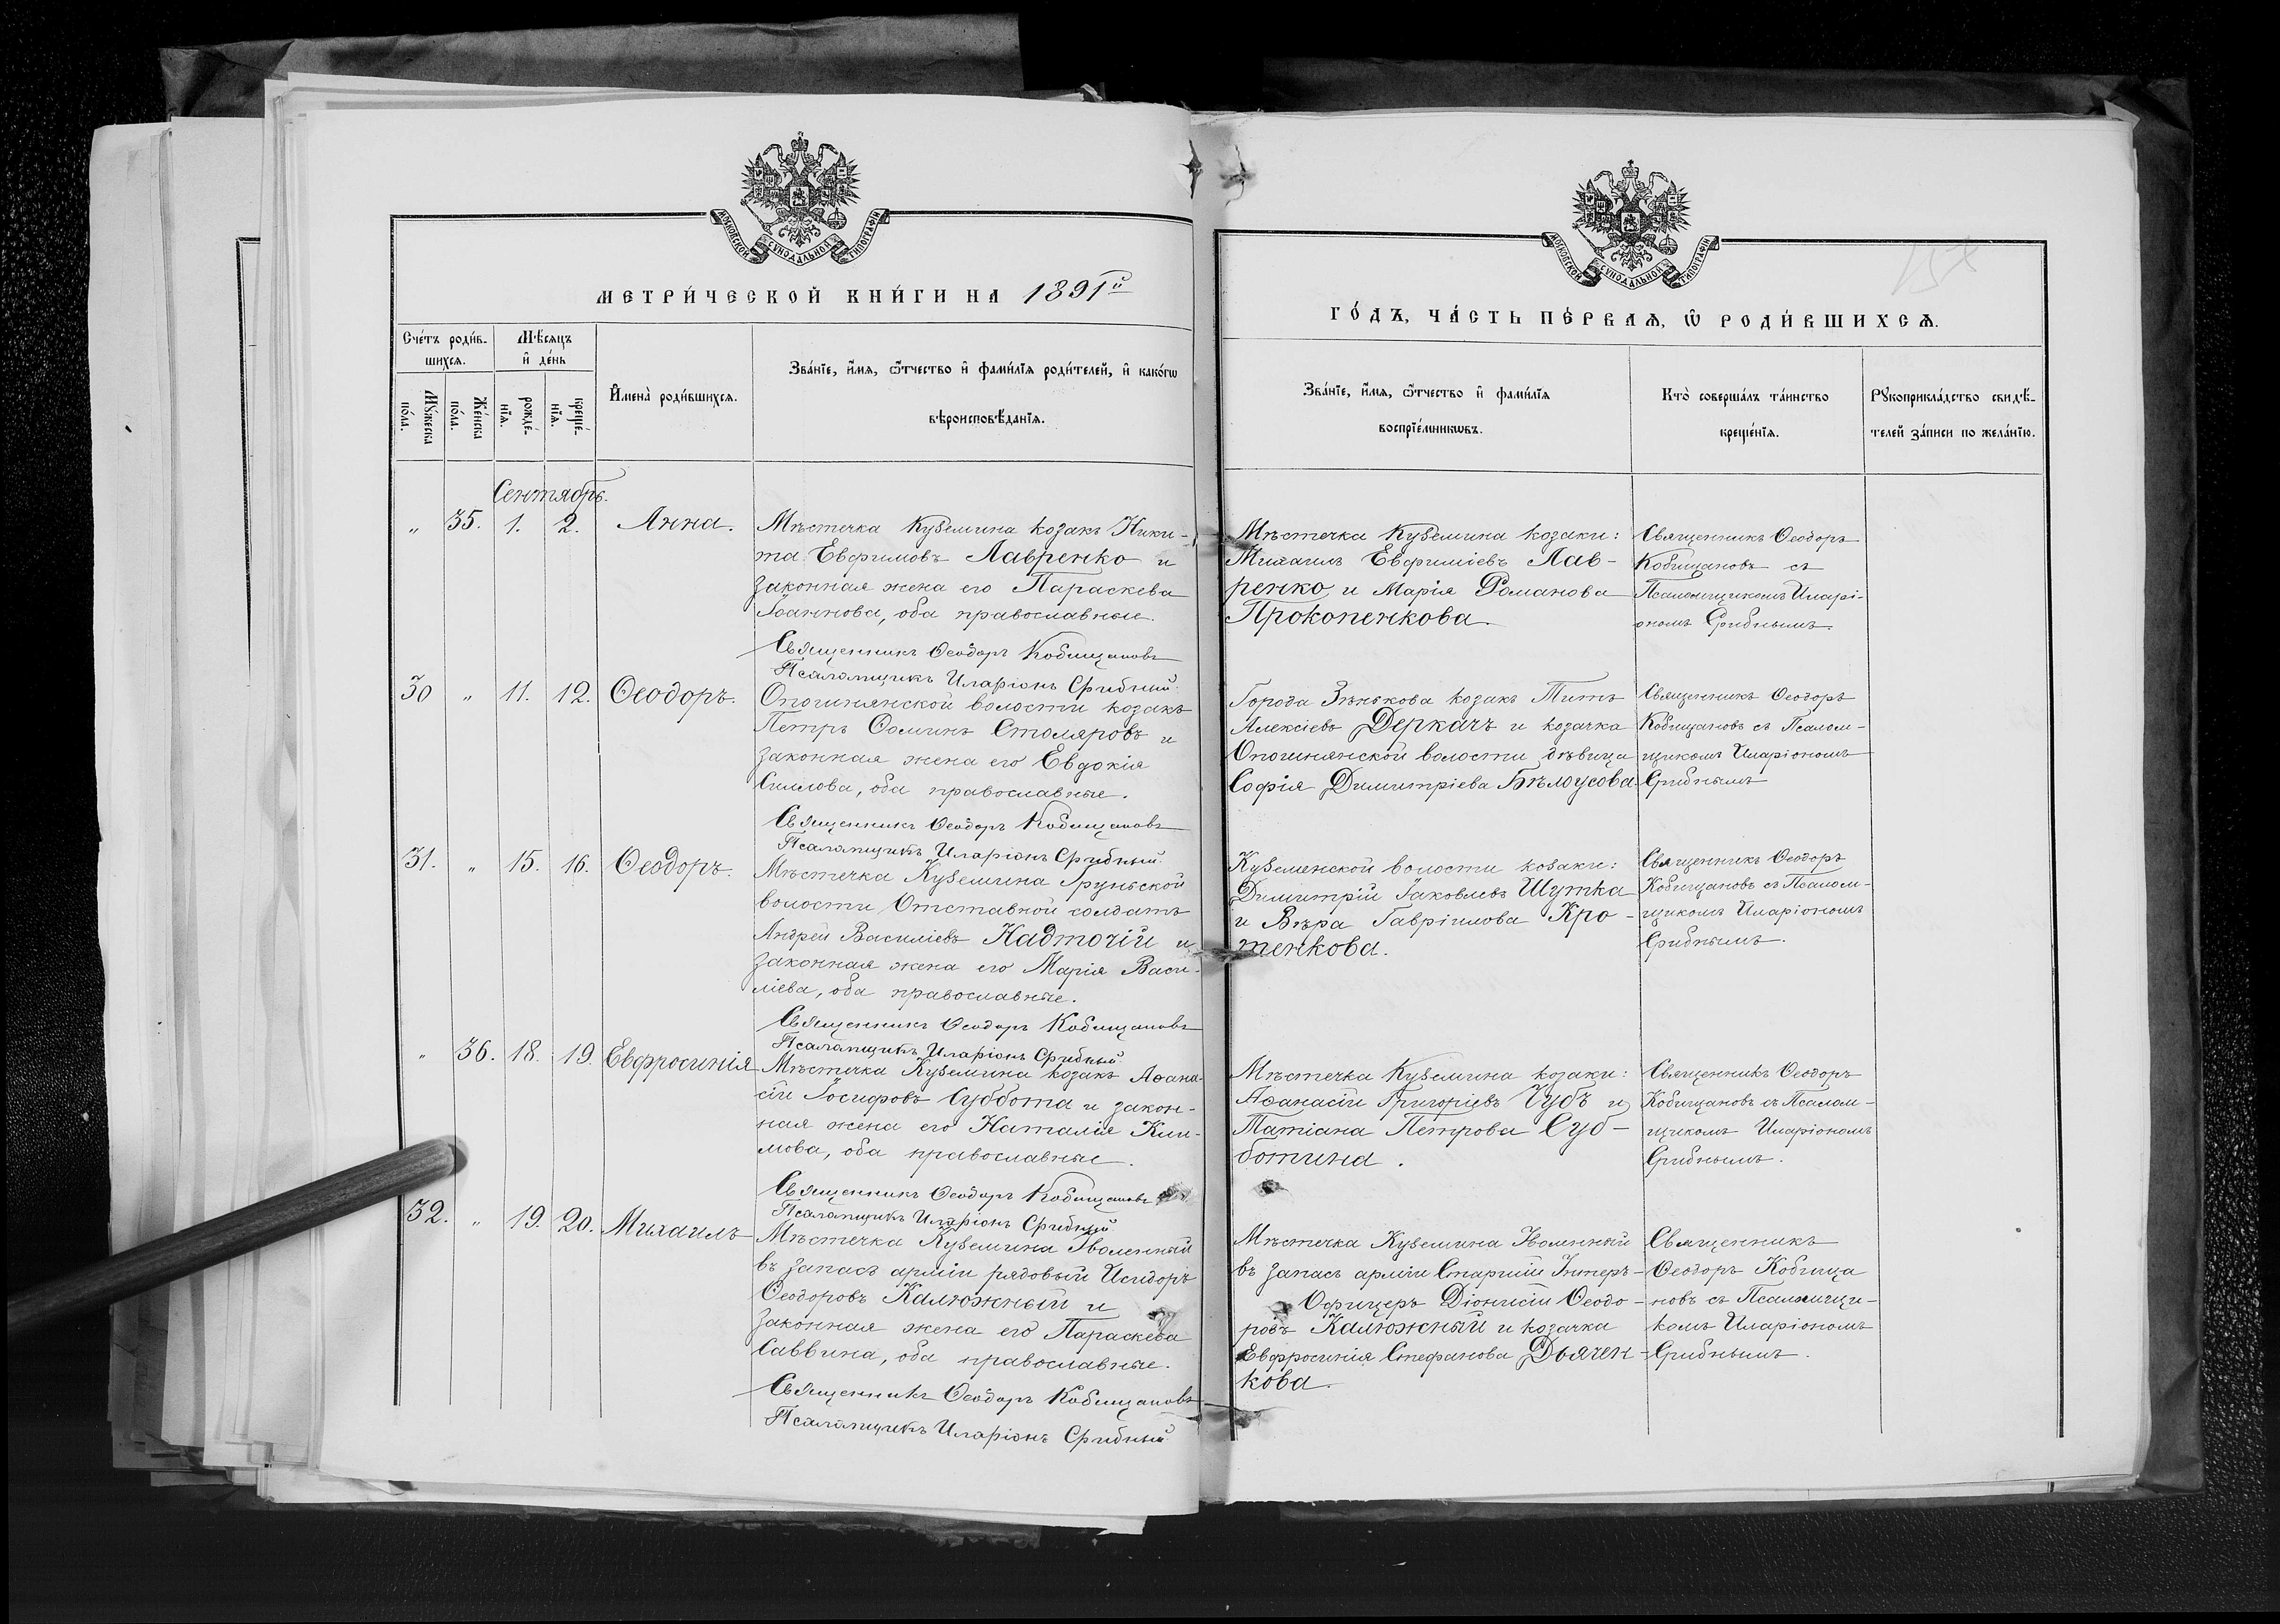 МОСКОВСКОЙ СѴНОДАЛЬНОЙ ТИПОГРАФІИ
МЕТРИ́ЧЕСКОЙ КНИ́ГИ НА 1891й
Сче́тъ роди́в-
шихся.
Мѣ́сяцъ
и҆ де́нь
Мꙋ́жеска
по́ла.
Же́нска
по́ла.
рожде́-
нїѧ.
креще́-
нїѧ.
И҆мена̀ роди́вшихсѧ.
Зва́нїе, и҆́мѧ, ѻ҆́тчество и҆ фами́лїѧ роди́телей, и҆ како́гѡ
вѣроисповѣ́данїѧ.
Сентябрь.
„ 35. 1. 2. Анна.
Мѣстечка Куземина козакъ Ники-
та Евфимовъ Лавренко и
законная жена его Параскева
Іоаннова, оба православные.
Священникъ Ѳеодоръ Кобищановъ
Псаломщикъ Иларіонъ Срибный.
30 „ 11. 12. Ѳеодоръ.
Опошнянской волости козакъ
Петръ Ѳоминъ Столяровъ и
законная жена его Евдокія
Симова, оба православные.
Священникъ Ѳеодоръ Кобищановъ
Псаломщикъ Иларіонъ Срибный.
31. „ 15. 16. Ѳеодоръ.
Мѣстечка Куземина Груньской
волости Отставной солдатъ
Андрей Василіевъ Надточій и
законная жена его Марія Васи-
ліева, оба православные.
Священникъ Ѳеодоръ Кобищановъ
Псаломщикъ Иларіонъ Срибный.
„ 36. 18. 19. Евфросинія
Мѣстечка Куземина козакъ Аѳана-
сій Іосифовъ Суббота и закон-
ная жена его Наталія Кли-
мова, оба православные.
Священникъ Ѳеодоръ Кобищановъ
Псаломщикъ Иларіонъ Срибный.
32. „ 19. 20. Михаилъ
Мѣстечка Куземина Уволенный
въ запасъ арміи рядовый Исидоръ
Ѳеодоровъ Калюжный и
законная жена его Параскева
Саввина, оба православные.
Священникъ Ѳеодоръ Кобищановъ
Псаломщикъ Иларіонъ Срибный
МОСКОВСКОЙ СѴНОДАЛЬНОЙ ТИПОГРАФІИ
ГО́ДЪ, ЧА́СТЬ ПЕ́РВАѦ, Ѡ҆ РОДИ́ВШИХСѦ.
Зва́нїе, и҆́мѧ, ѻ҆́тчество и҆ фами́лїѧ
воспрїе́мникѡвъ.
Кто̀ соверша́лъ та́инство
креще́нїѧ.
Рꙋкоприкла́дство свидѣ́-
телей за́писи по жела́нїю.
Мѣстечка Куземина козаки:
Михаилъ Евфиміевъ Лав-
ренко и Марія Романова
Прокопенкова.
Священникъ Ѳеодоръ
Кобищановъ съ
Псаломщикомъ Иларі-
ономъ Срибнымъ.
Города Зѣнькова козакъ Титъ
Алексіевъ Деркачъ и козачка
Опошнянской волости дѣвица
Софія Димитріева Бѣлоусова.
Священникъ Ѳеодоръ
Кобищановъ съ Псалом-
щикомъ Иларіономъ
Срибнымъ
Куземенской волости козаки:
Димитрій Іаковлевъ Шутка
и Вѣра Гавріилова Кро-
тенкова.
Священникъ Ѳеодоръ
Кобищановъ съ Псалом-
щикомъ Иларіономъ
Срибнымъ.
Мѣстечка Куземина козаки:
Аѳанасій Григоріевъ Чубъ и
Татіана Петрова Суб-
ботина.
Священникъ Ѳеодоръ
Кобищановъ съ Псалом-
щикомъ Иларіономъ
Срибнымъ.
Мѣстечка Куземина Уволенный
въ запасъ арміи Старшій Унтеръ-
Офицеръ Діонисій Ѳеодо-
ровъ Калюжный и козачка
Евфросинія Стефанова Дьячен-
кова.
Священникъ
Ѳеодоръ Кобища
новъ съ Псаломщи-
комъ Иларіономъ
Срибнымъ.